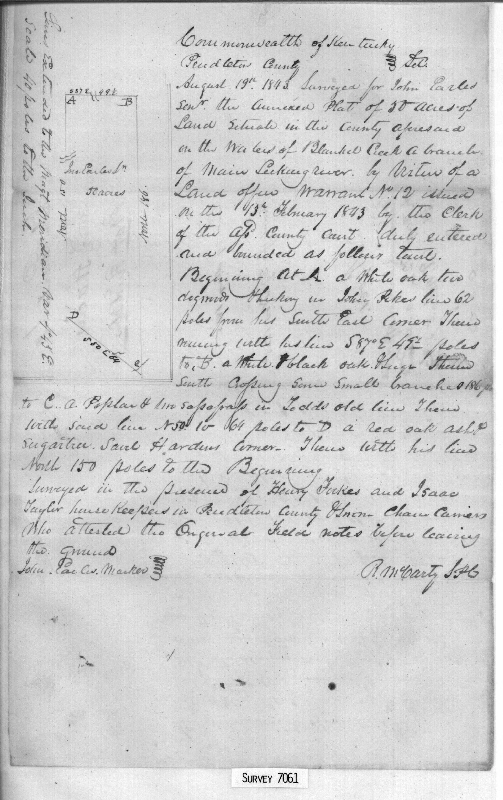 Commonwealth of Kentucky
Pendleton County Sct.
August 19th 1843 Surveyed for John Earles
Senr. the annexed Plat of 50 acres of
Land Situate in the County aforesaid
on the Waters of Blanket Creek a branch
of Main Licking river. by Virtue of a
Land office Warrant No. 12 issued
on the 13th February 1843 by the Clerk
of the afd. County court duly entered
and bounded as follows towit.
Beginning At A. a White oak two
dogwoods & hickory in John line 62
poles from his South East Corner Thence
running with his line S 87° E 49½ poles
to B. a White & black oak & Thence
South Crossing Some Small branches 186 p
to C. a Poplar & two Sassafrass in Todds old line Thence
with Said line N 50 W 64 poles to D a red oak ash &
Sugartree. Said Hardens Corner. Thence with his line
North 150 poles to the Beginning
Surveyed in the presence of Henry and Isaac
Taylor housekeepers in Pendleton County & Sworn Chain Carriers
Who attested the Original Field notes before leaving
the Ground
John Earles Marker
R. McCarty S.P.C
A
B
50 acres
D
S 50 E 64
C
Lines Extended to the Magt. Meridian Var.
Scale 40 poles to the Inch
SURVEY 7061